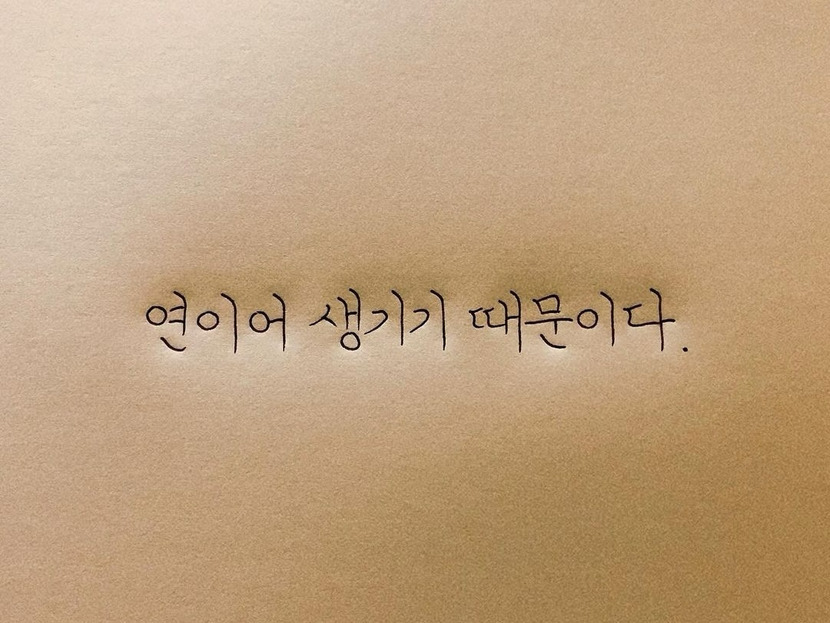 연이어 생기기 때문이다.